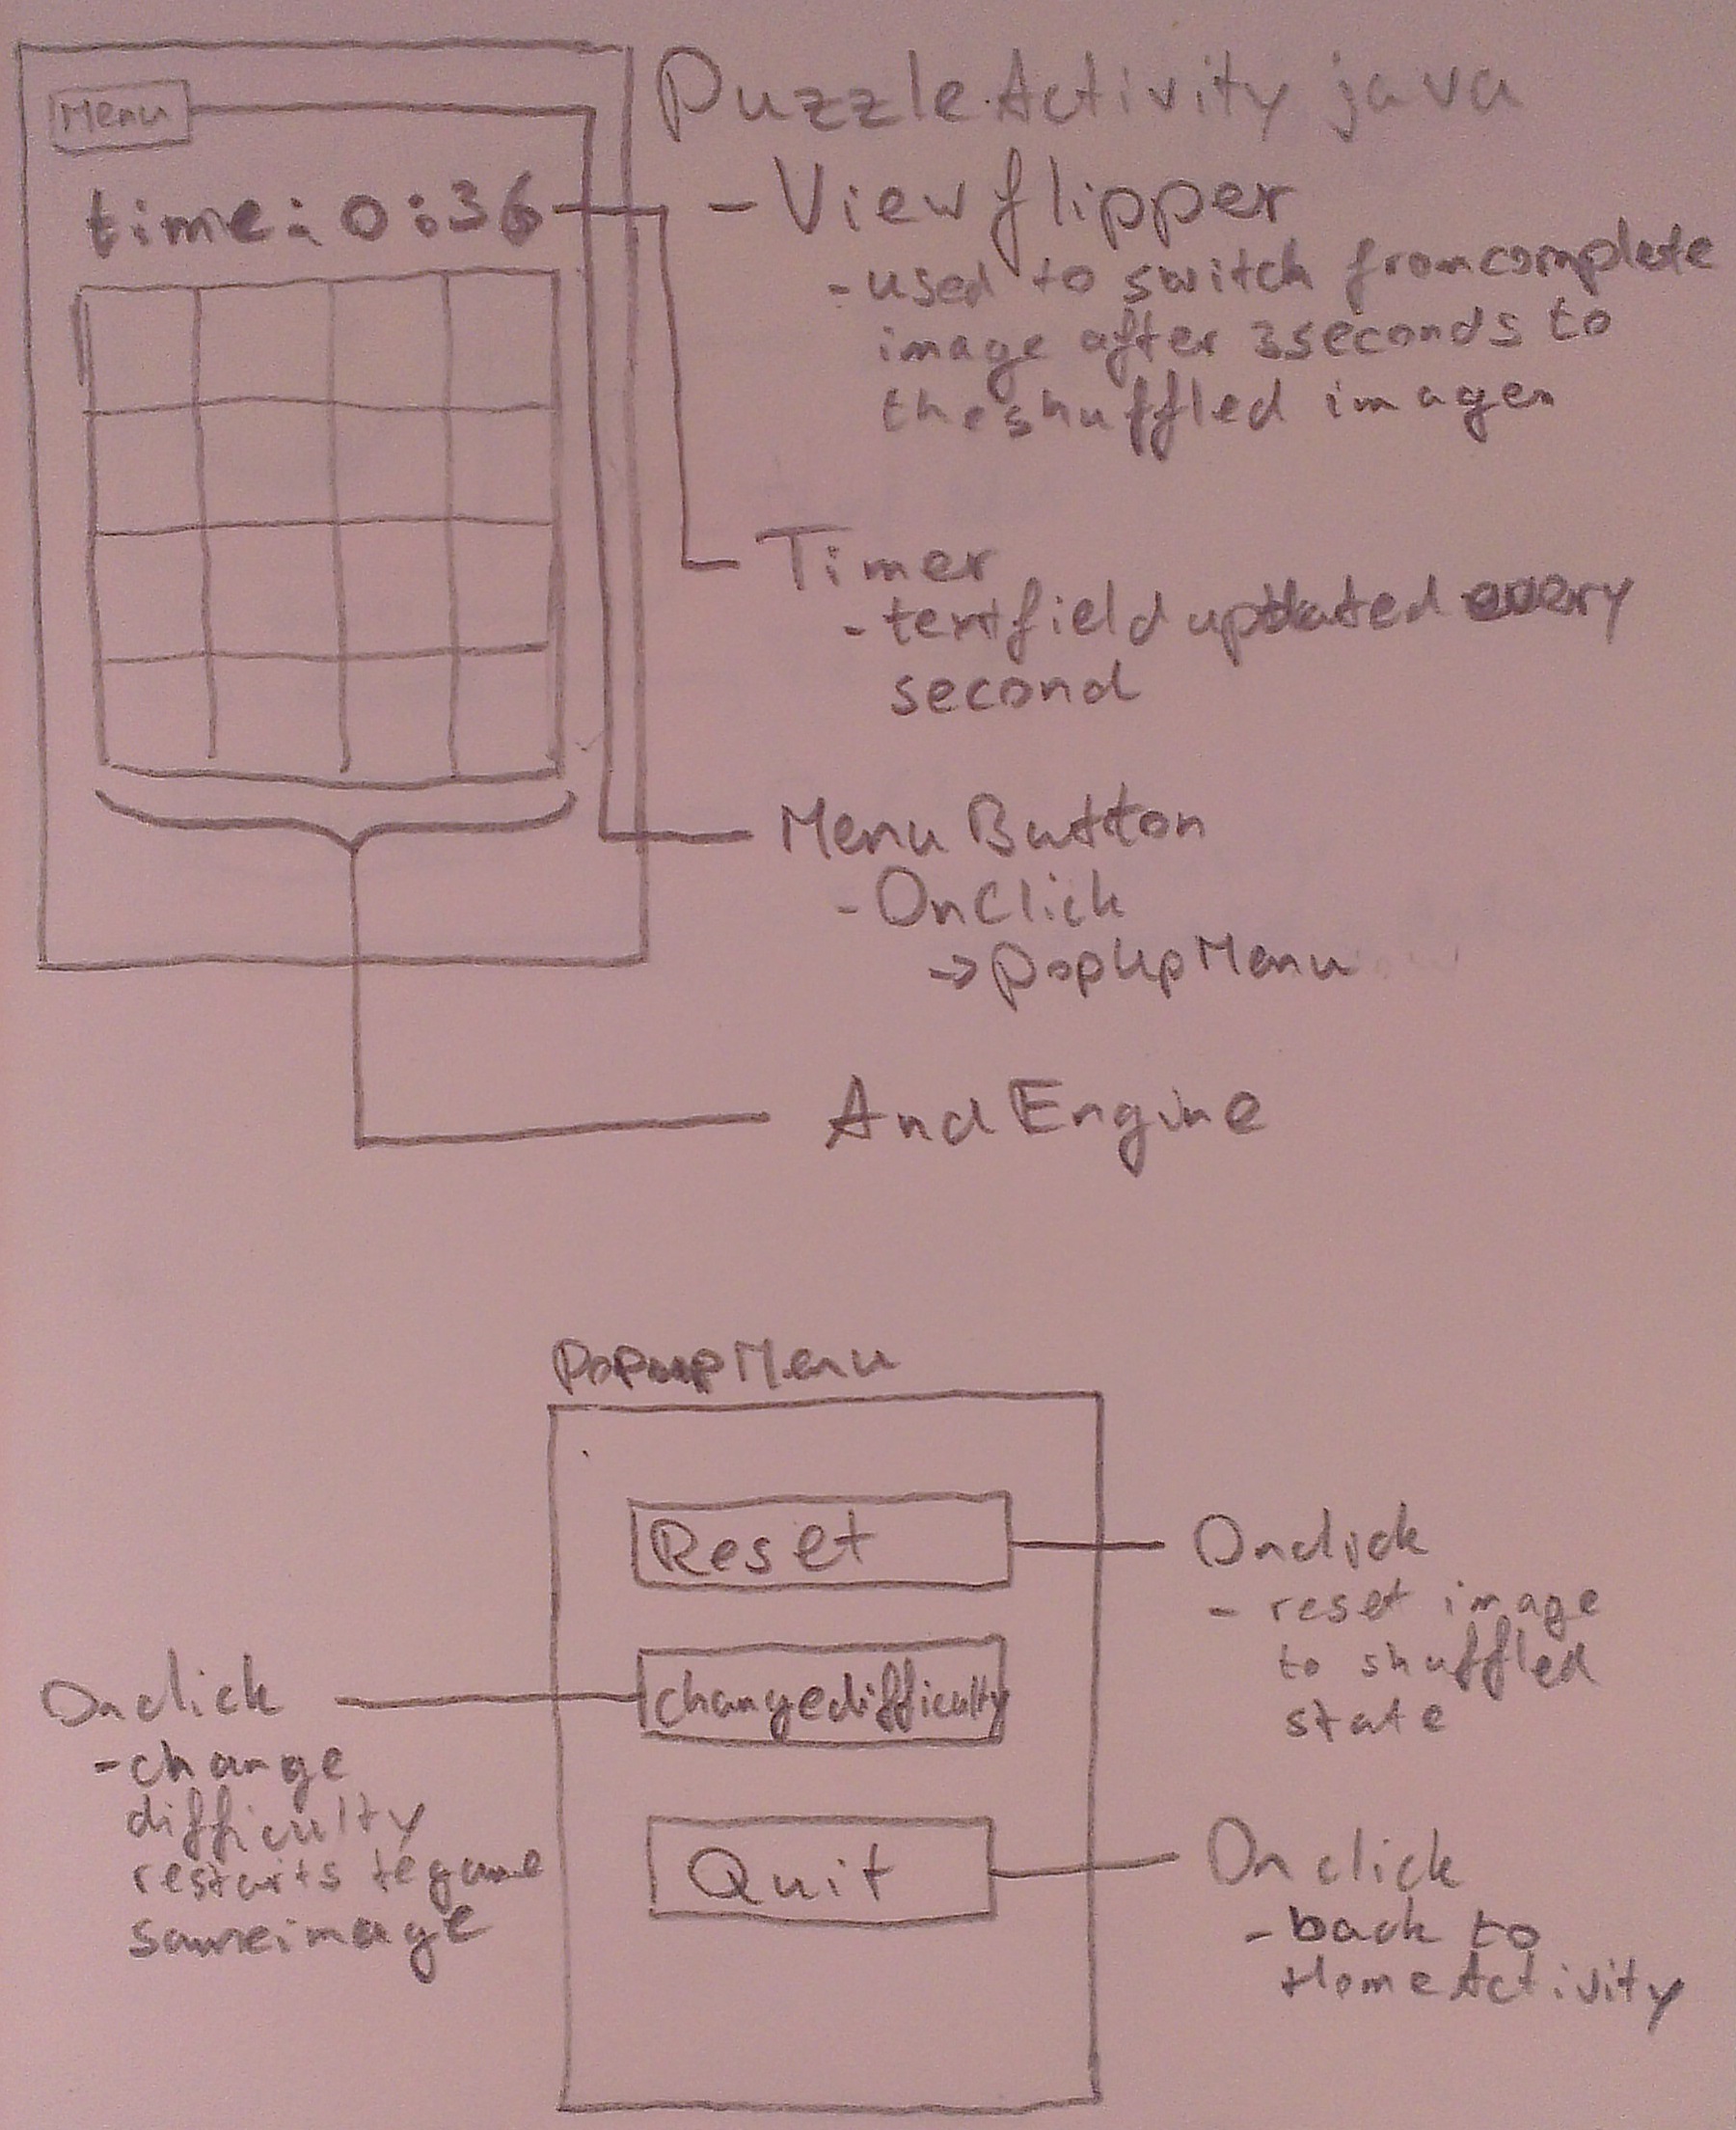 Menu
time: 0:36
PuzzleActivity java
- Viewflipper
- used to switch from complete
image after 3 seconds to
the shuffled images
Timer
- textfield updated every
second
Menu Button
- OnClick
-> PopUpMenu
AndEngine
PopupMenu
Reset
Onclick
- reset image
to shuffled
state
change difficulty
Onclick
- change
difficulty
restarts te game
same image
Quit
Onclick
- back to
HomeActivity